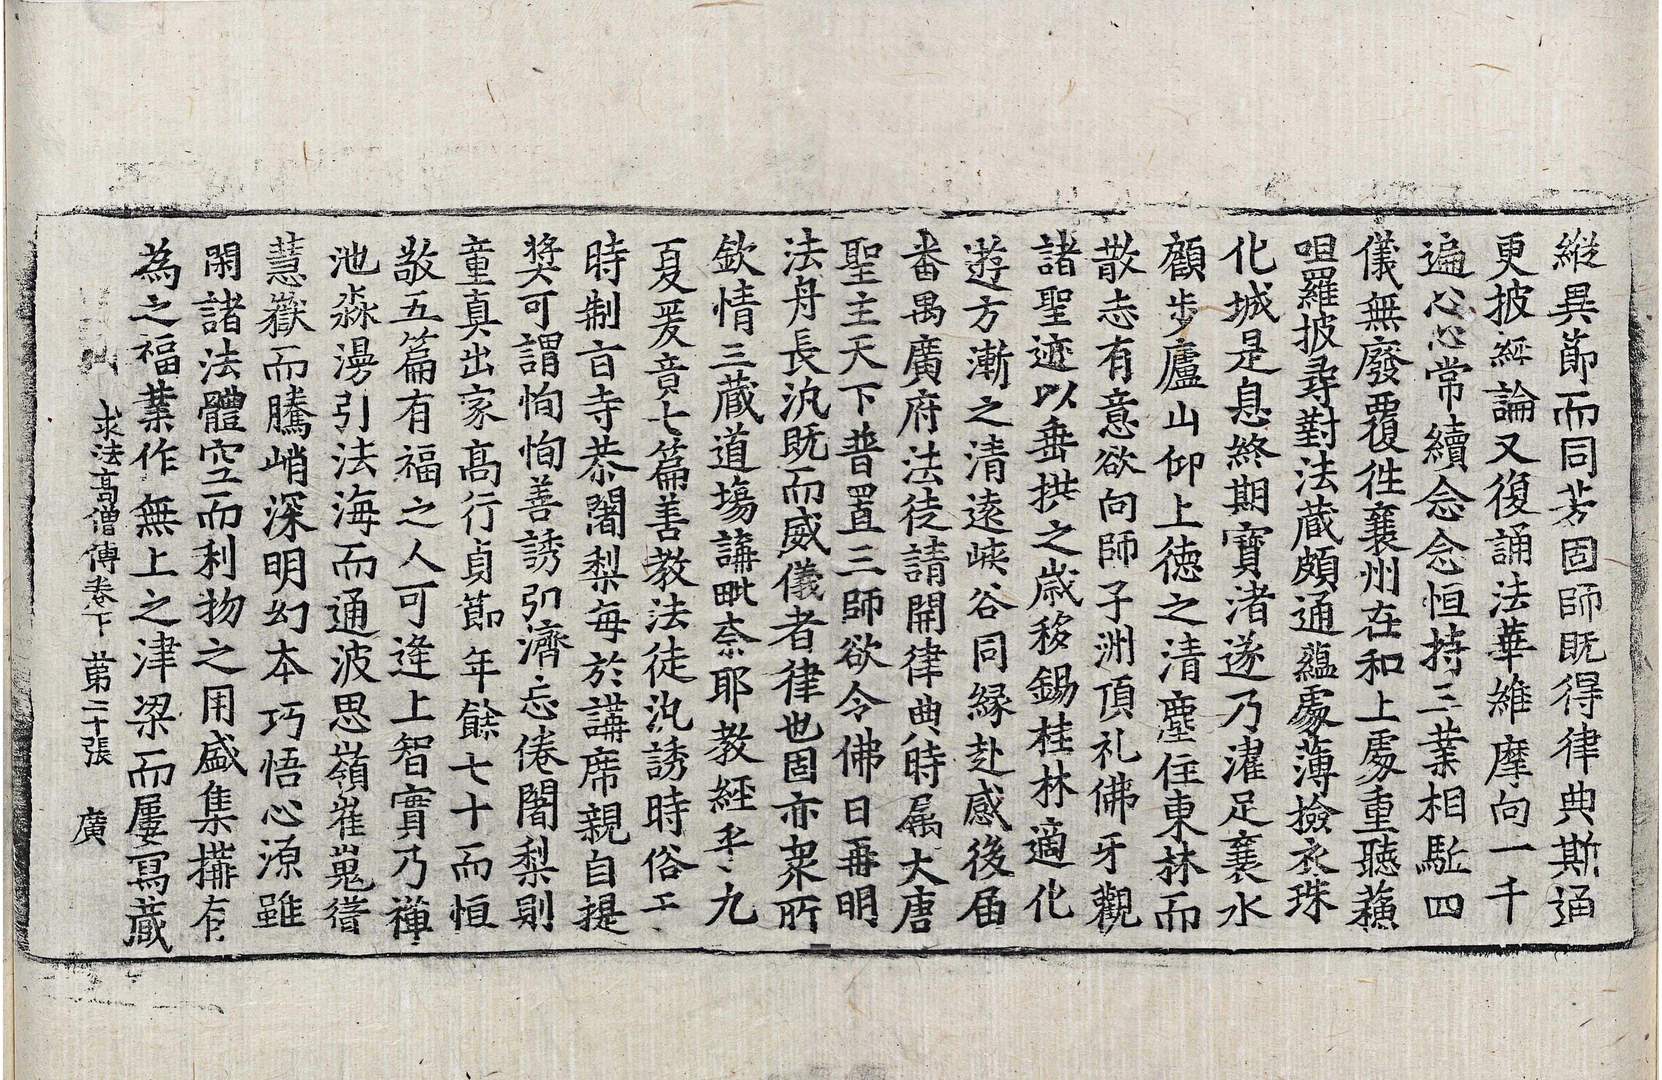 縱異節而同芳固師既得律典斯通
更披經論又復誦法華維摩向一千
遍心心常續念念恒持三業相駈四
儀無廢覆徃襄州在和上處重聽蘓
呾羅披尋對法藏頗通蘊處薄撿衣珠
化城是息終期寶渚遂乃濯足襄水
顧步廬山仰上德之清塵住東林而
散志有意欲向師子洲頂礼佛牙觀
諸聖迹以垂拱之歲移錫桂林適化
遊方漸之清遠峽谷同縁赴感後届
番禺廣府法徒請開律典時属大唐
聖主天下普置三師欲令佛日再明
法舟長汎既而威儀者律也固亦衆所
欽情三藏道塲講毗奈耶教經乎九
夏爰竟七篇善教法徒汎誘時俗工
時制㫖寺恭闍梨每於講席親自提
奬可謂恂恂善誘引濟忘倦闍梨則
童真出家高行貞節年餘七十而恒
敬五篇有福之人可逢上智實乃禪
池淼漫引法海而通波思嶺崔嵬凳
慧嶽而騰峭深明幻本巧悟心源雖
閑諸法體空而利物之用盛集搆有
為之福業作無上之津梁而屢寫藏
求法高僧傳卷下　第二十張　廣